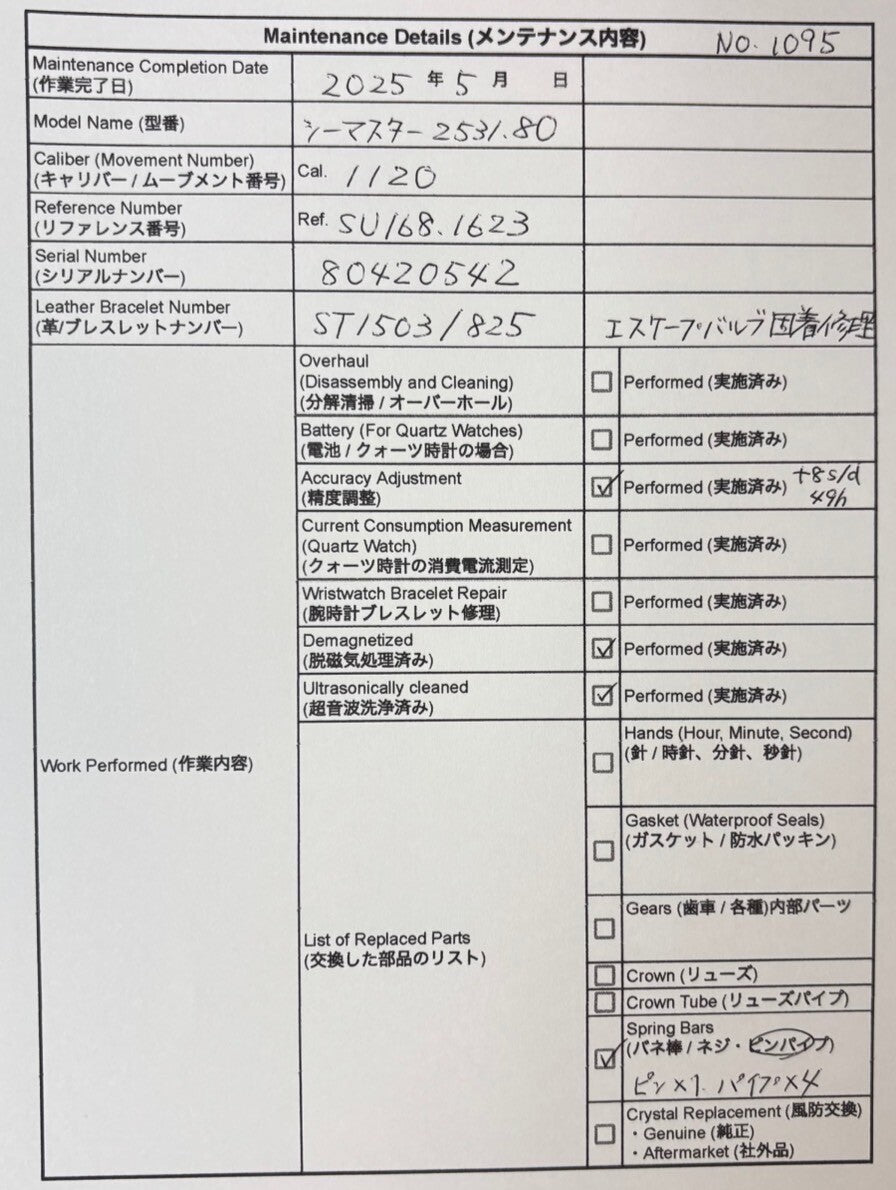 Maintenance Details (メンテナンス内容) NO. 1095
Maintenance Completion Date
(作業完了日)
2025 年 5 月 日
Model Name (型番)
シーマスター 2531.80
Caliber (Movement Number)
(キャリバー / ムーブメント番号)
Cal. 1120
Reference Number
(リファレンス番号)
Ref. SU168.1623
Serial Number
(シリアルナンバー)
80420542
Leather Bracelet Number
(革/ブレスレットナンバー)
ST1503/825
エスケープバルブ固着修理
Work Performed (作業内容)
Overhaul
(Disassembly and Cleaning)
(分解清掃 / オーバーホール)
Performed (実施済み)
Battery (For Quartz Watches)
(電池 / クォーツ時計の場合)
Performed (実施済み)
Accuracy Adjustment
(精度調整)
Performed (実施済み) +8s/d
49h
Current Consumption Measurement
(Quartz Watch)
(クォーツ時計の消費電流測定)
Performed (実施済み)
Wristwatch Bracelet Repair
(腕時計ブレスレット修理)
Performed (実施済み)
Demagnetized
(脱磁気処理済み)
Performed (実施済み)
Ultrasonically cleaned
(超音波洗浄済み)
Performed (実施済み)
List of Replaced Parts
(交換した部品のリスト)
Hands (Hour, Minute, Second)
(針 / 時針、分針、秒針)
Gasket (Waterproof Seals)
(ガスケット / 防水パッキン)
Gears (歯車 / 各種)内部パーツ
Crown (リューズ)
Crown Tube (リューズパイプ)
Spring Bars
(バネ棒 / ネジ・ピンパイプ)
ピン×1. パイプ×4
Crystal Replacement (風防交換)
・Genuine (純正)
・Aftermarket (社外品)